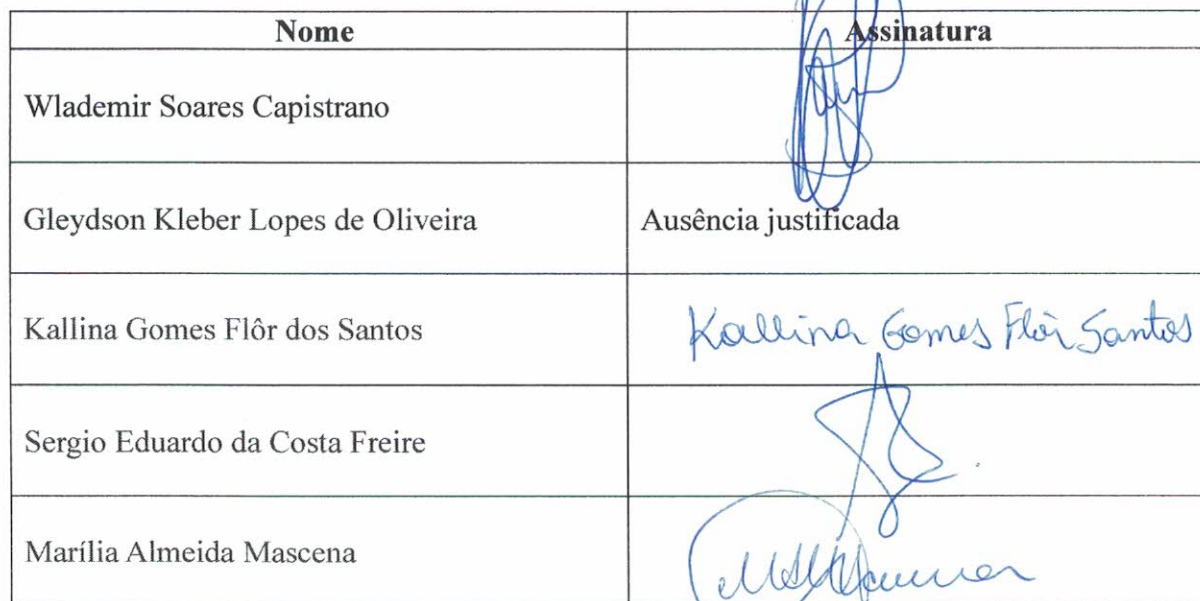 Nome Assinatura
Wlademir Soares Capistrano
Gleydson Kleber Lopes de Oliveira Ausência justificada
Kallina Gomes Flôr dos Santos Kallina Gomes Flôr Santos
Sergio Eduardo da Costa Freire
Marília Almeida Mascena